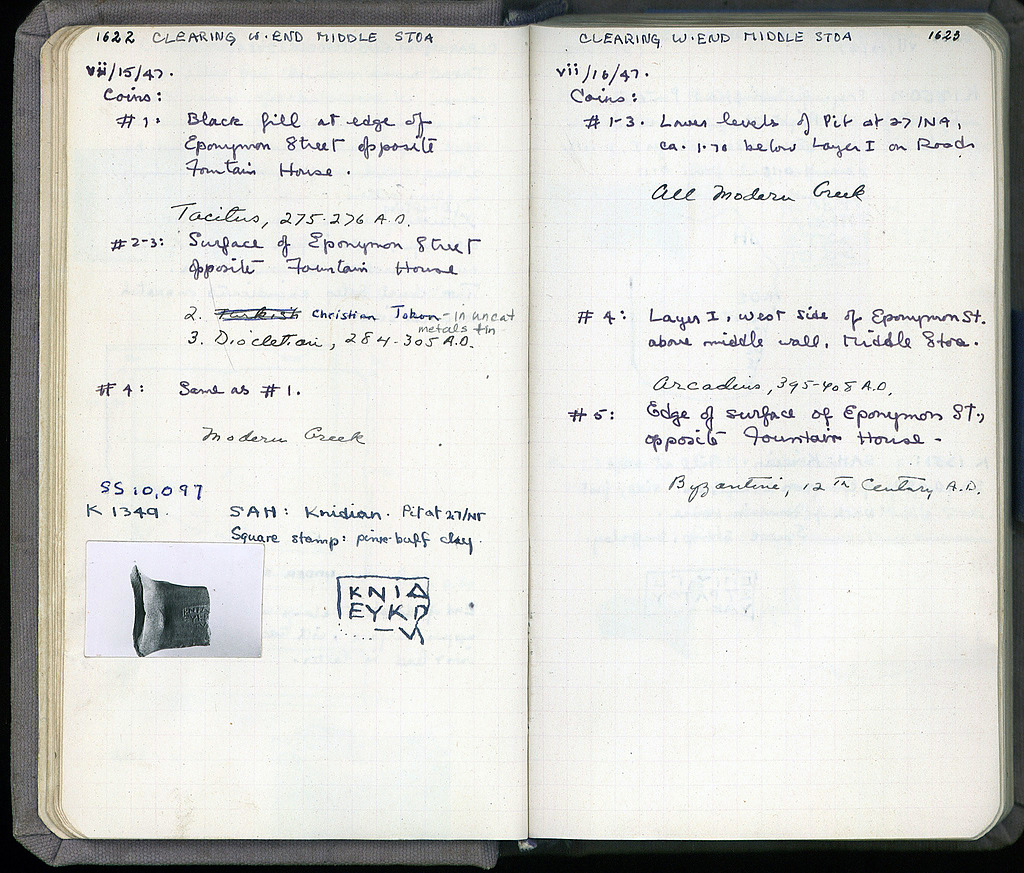 1622 CLEARING W. END MIDDLE STOA
vii/15/47.
Coins:
#1: Black fill at edge of
Eponymon Street opposite
Fountain House.
Tacitus, 275-276 A.D.
#2-3: Surface of Eponymon Street
opposite Fountain House
2. Turkish Christian Token - in uncat
metals tin
3. Diocletian, 284-305 A.D.
#4: Same as #1.
Modern Greek
SS 10,097
K 1349. SAH: Knidian. Pit at 27/ΝΓ
Square stamp: pink-buff clay.
ΚΝΙΔ
ΕΥΚΡ
CLEARING W. END MIDDLE STOA 1623
vii/16/47.
Coins:
#1-3. Lower levels of Pit at 27/ΝΛ,
ca. 1.70 below Layer I on Road
All Modern Greek
#4: Layer I, west side of Eponymon St.
above middle wall, Middle Stoa.
Arcadius, 395-408 A.D.
#5: Edge of surface of Eponymon St.,
opposite Fountain House -
Byzantine, 12th Century A.D.